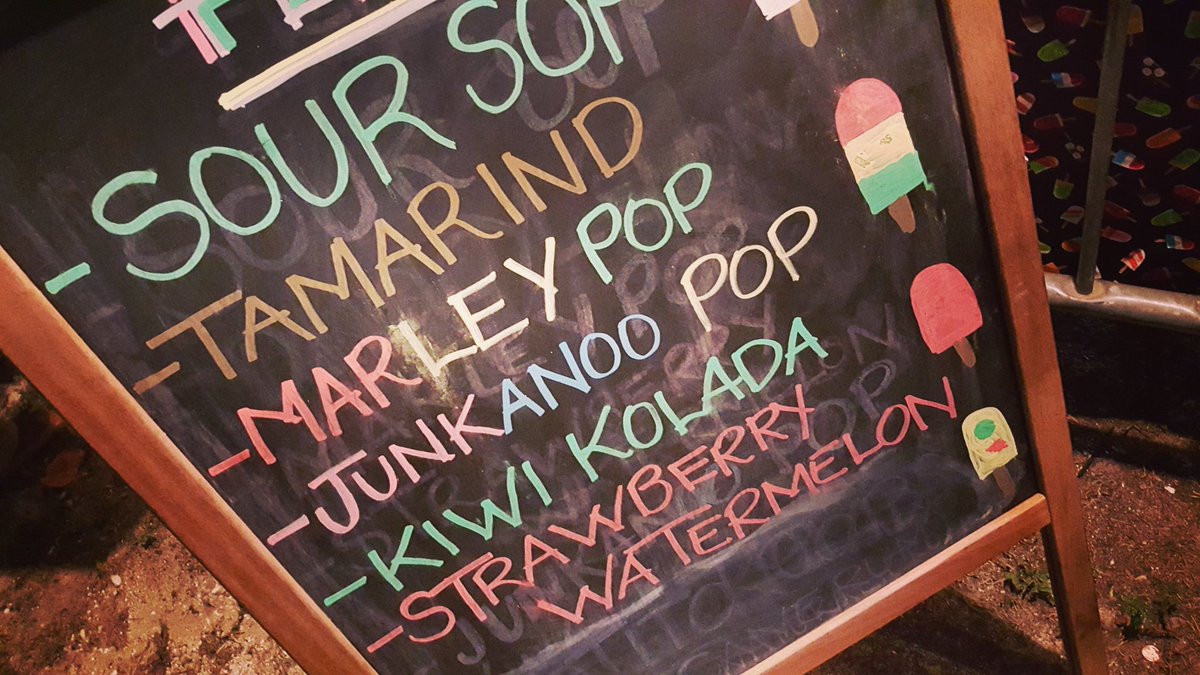 - SOUR SOP
- TAMARIND
- MARLEY POP
- JUNKANOO POP
- KIWI KOLADA
- STRAWBERRY
WATERMELON